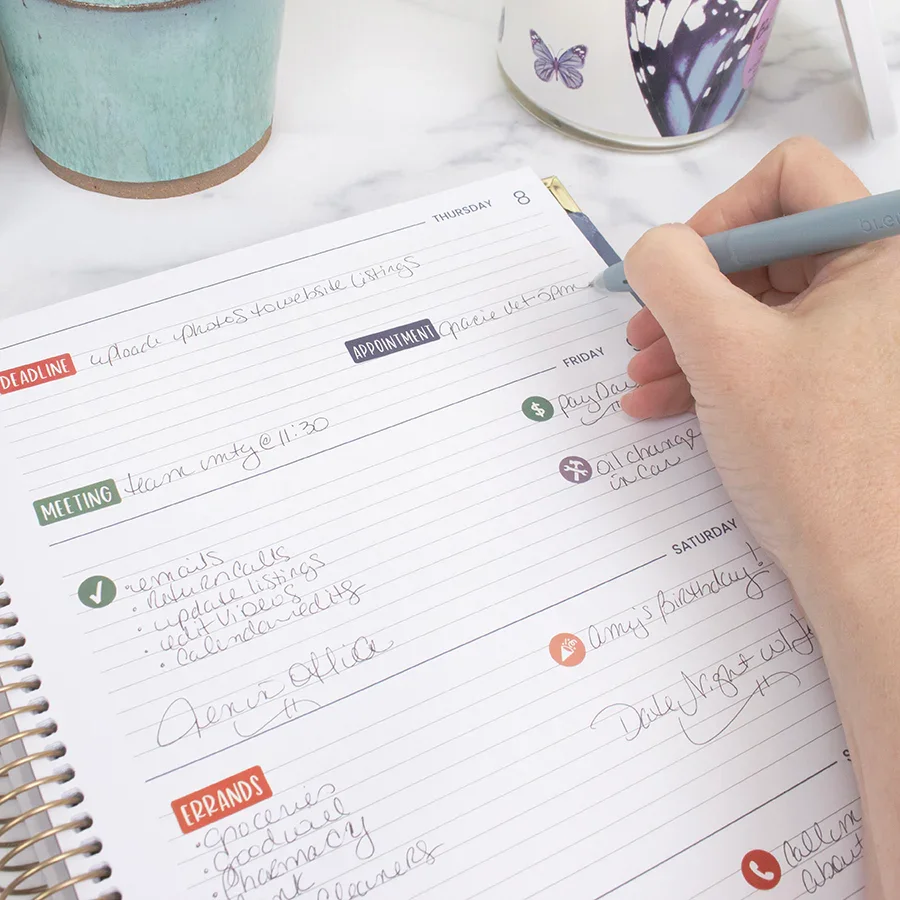 THURSDAY 8
DEADLINE upload photos to website listings
APPOINTMENT Gracie vet 5pm
FRIDAY
MEETING team mtg @ 11:30
pay Day
oil change
in car
SATURDAY
• emails
• return calls
• update listings
• edit videos
• calendar edits
Jen in Office
Amy's Birthday!
Date Night
ERRANDS
• groceries
• goodwill
• Pharmacy
Cleaners
S
Call
about